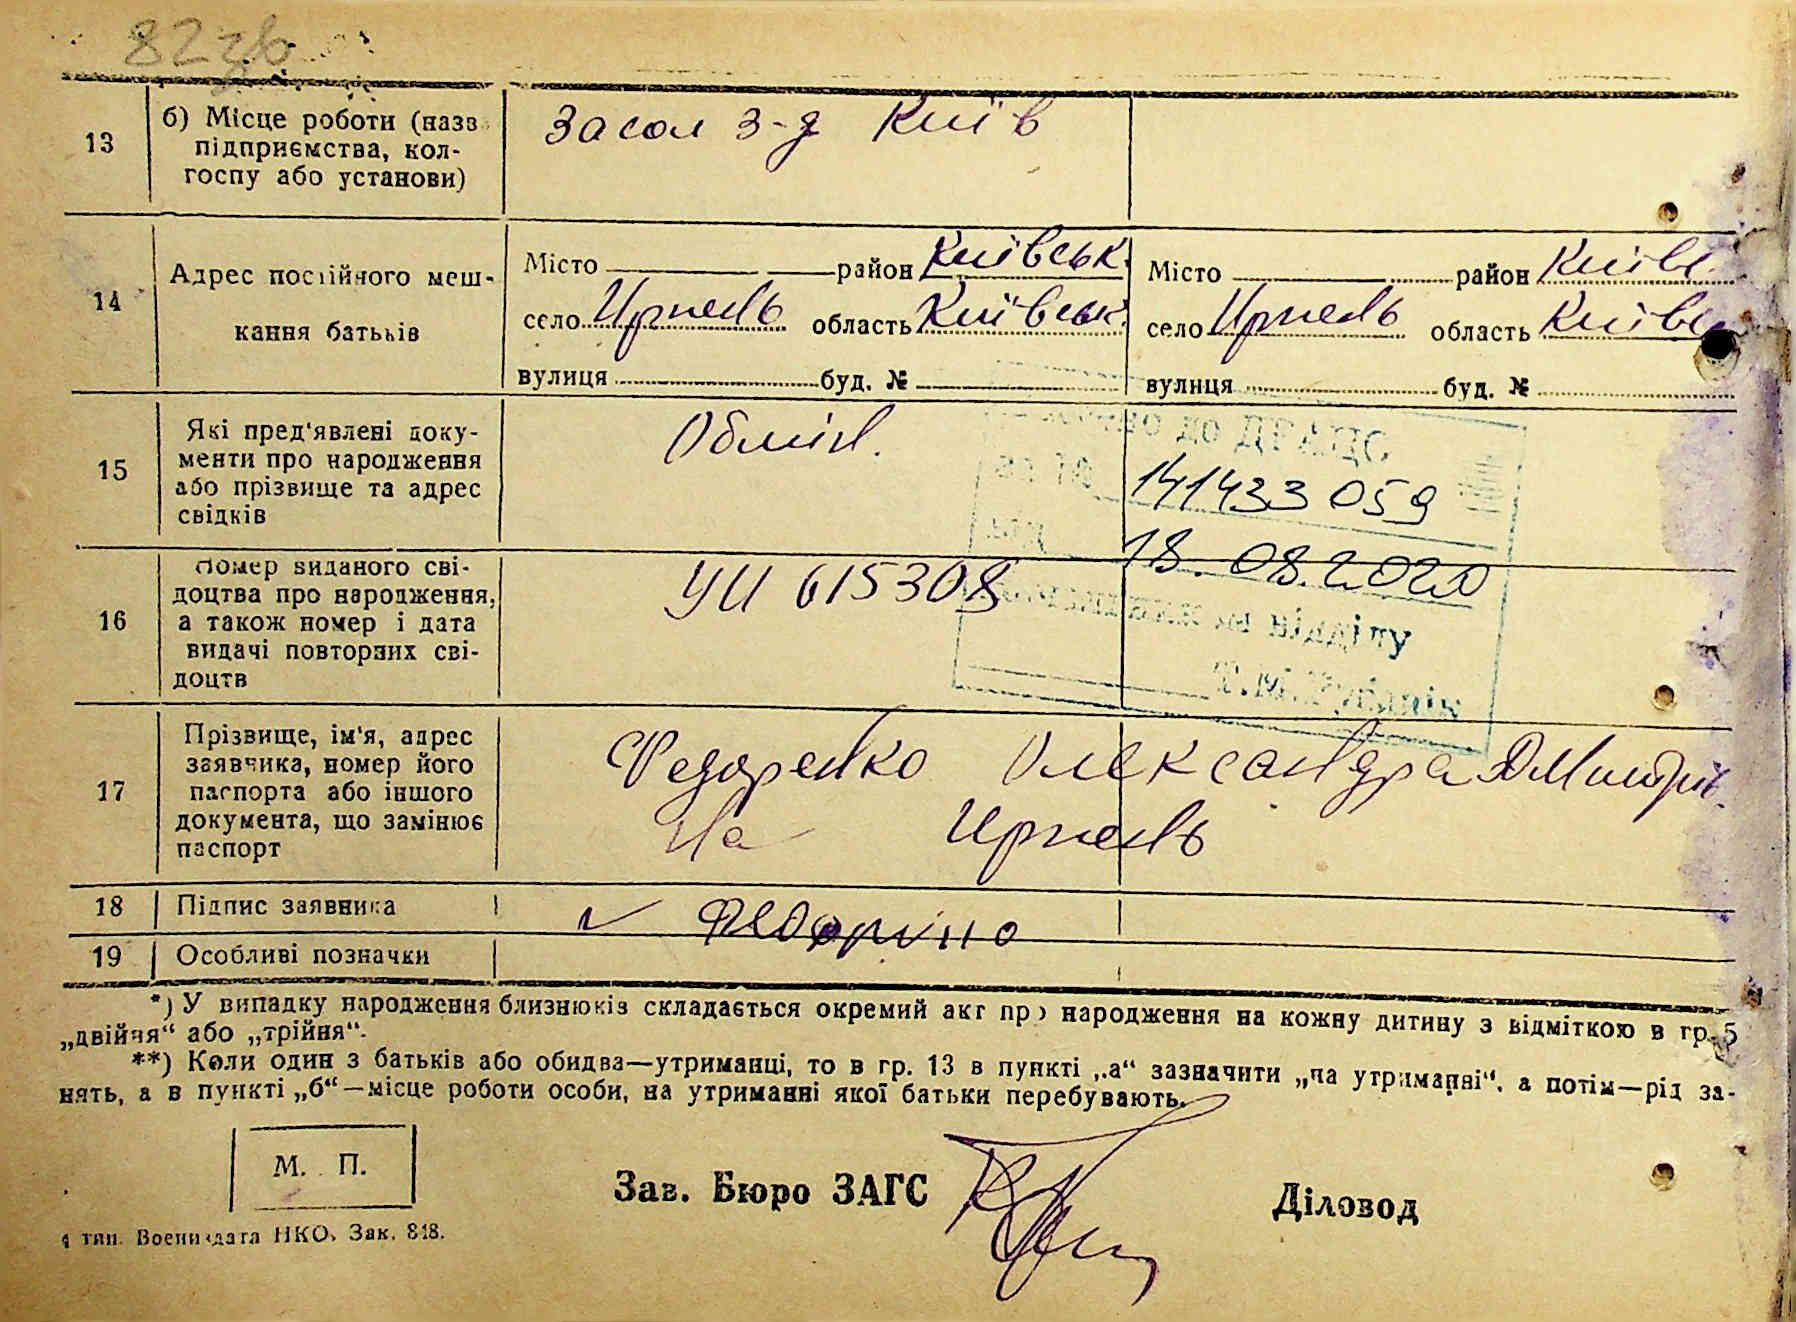 82зв
13
б) Місце роботи (назв
підприємства, кол-
госпу або установи)
Засол з-д Київ
14
Адрес постійного меш-
кання батьків
Місто район Київськ.
село Ирпень область Київськ.
вулиця буд. №
Місто район Київс.
село Ирпень область Київс
вулиця буд. №
15
Які пред'явлені доку-
менти про народження
або прізвище та адрес
свідків
Обмін.
141433 059
18.08.2020
16
Номер виданого сві-
доцтва про народження,
а також номер і дата
видачі повторних сві-
доцтв
УИ 615308
17
Прізвище, ім'я, адрес
заявчика, номер його
паспорта або іншого
документа, що замінює
паспорт
Федоренко Олександра Дмитрів.
Ирпень
18 Підпис заявника
19 Особливі позначки
*) У випадку народження близнюків складається окремий акт про народження на кожну дитину з відміткою в гр. 5
„двійня“ або „трійня“.
**) Коли один з батьків або обидва—утриманці, то в гр. 13 в пункті „а“ зазначити „на утриманні“, а потім—рід за-
нять, а в пункті „б“—місце роботи особи, на утриманні якої батьки перебувають.
М. П.
Зав. Бюро ЗАГС
Діловод
тип. Воениздата НКО. Зак. 848.